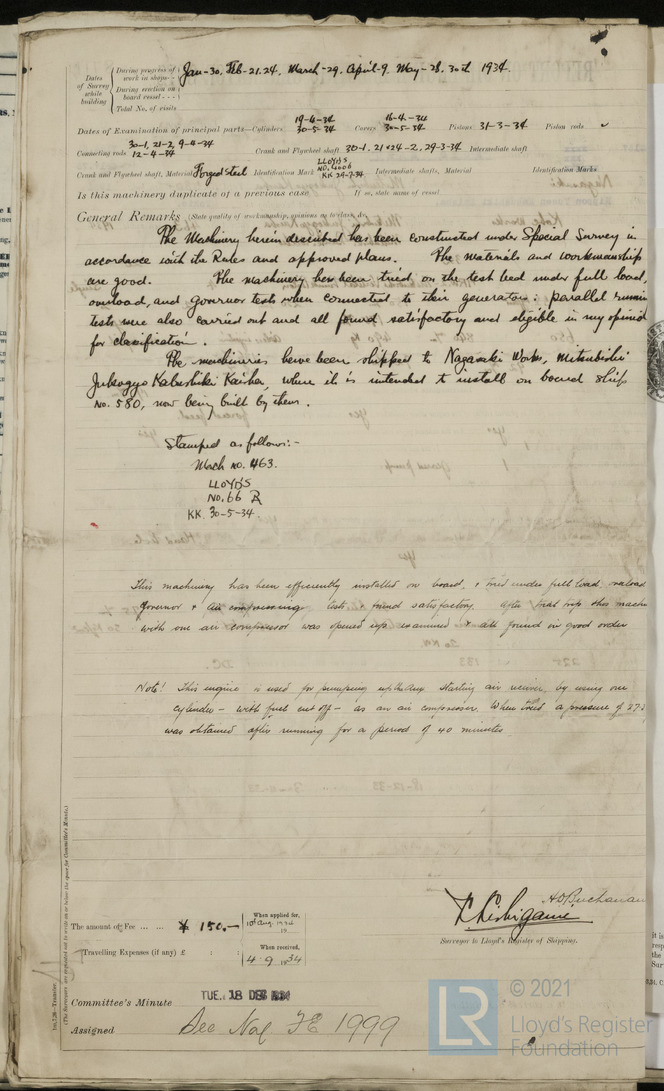 Dates of Survey while building
During progress of work in shops - - Jan-30, Feb-21.24, March-29, April-9, May-28, 30th 1934.
During erection on board vessel - - -
Total No. of visits
Dates of Examination of principal parts—Cylinders 19-4-34 30-5-34 Covers 16-4-34 30-5-34 Pistons 31-3-34 Piston rods
Connecting rods 30-1, 21-2, 9-4-34 12-4-34 Crank and Flywheel shaft 30-1, 21 & 24-2, 29-3-34 Intermediate shaft
Crank and Flywheel shaft, Material Forged Steel Identification Mark LLOYD'S NO. 4006 KK 29-3-34 Intermediate shafts, Material Identification Marks
Is this machinery duplicate of a previous case If so, state name of vessel
General Remarks (State quality of workmanship, opinions as to class, &c.
The Machinery herein described has been constructed under Special Survey in
accordance with the Rules and approved plans. The materials and workmanship
are good. The machinery has been tried on the test bed under full load,
overload, and governor tests when connected to their generators: parallel
tests were also carried out and all found satisfactory and eligible in my opinion
for classification.
The machineries have been shipped to Nagasaki Works, Mitsubishi
Jukogyo Kabushiki Kaisha, where it is intended to install on board ship
No. 580, now being built by them.
Stamped as follows:-
Mach no. 463.
LLOYD'S
No. 66 R
KK. 30-5-34.
This machinery has been efficiently installed on board, & tried under full load, overload
governor & air compressing tests & found satisfactory. After trial trip this
with one air compressor was opened up, examined & all found in good order
Note! This engine is used for pumping up the Aux starting air receiver, by using one
cylinder - with fuel cut off - as an air compressor. When tried a pressure of
was obtained after running for a period of 40 minutes.
A D Buchanan
Surveyor to Lloyd's Register of Shipping.
The amount of Fee ... ... ¥ 150.—
When applied for,
10th Aug. 1934
Travelling Expenses (if any) £ : :
When received,
4. 9. 1934
Committee's Minute TUE. 18 DEC 1934
Assigned See Nag FE 1999
(The Surveyors are requested not to write on or below the space for Committee's Minute.)
© 2021
LR
Lloyd's Register
Foundation